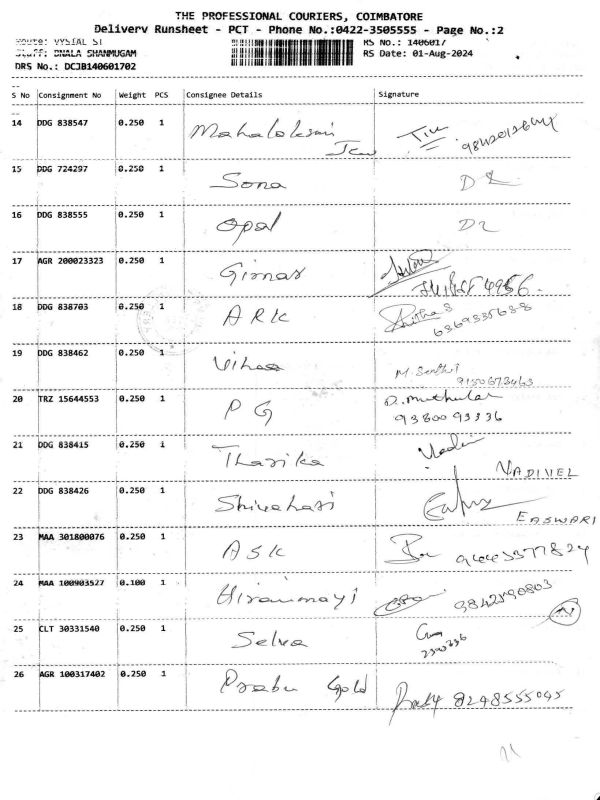 THE PROFESSIONAL COURIERS, COIMBATORE
Delivery Runsheet - PCT - Phone No.:0422-3505555 - Page No.:2
Route: VYSIAL ST RS No.: 1406017
Staff: BNALA SHANMUGAM RS Date: 01-Aug-2024
DRS No.: DCJB140601702
S No Consignment No Weight PCS Consignee Details Signature
14 DDG 838547 0.250 1 Mahalaksmi
15 DDG 724297 0.250 1 Sona
16 DDG 838555 0.250 1 Opal
17 AGR 200023323 0.250 1 Girnar
18 DDG 838703 0.250 1 ARK
6369335638
19 DDG 838462 0.250 1 Vihaa M. Senthil
9150673463
20 TRZ 15644553 0.250 1 PG D. Muthular
9380093336
21 DDG 838415 0.250 1 Tharika
VADIVEL
22 DDG 838426 0.250 1 Shivahari
EASWARI
23 MAA 301800076 0.250 1 ASK 9445377824
24 MAA 100903527 0.100 1 Hiranmayi 9842590803
25 CLT 30331540 0.250 1 Selva
26 AGR 100317402 0.250 1 Prabu Gold 8248555045